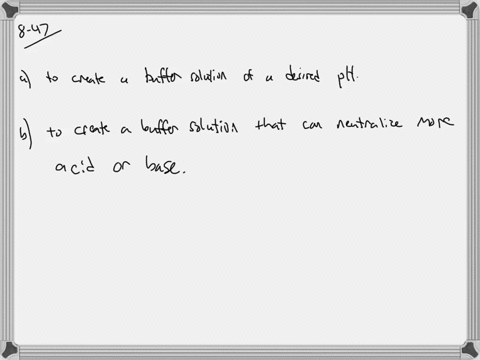 8-47
a) to create a buffer solution of a desired pH.
b) to create a buffer solution that can neutralize more
acid or base.